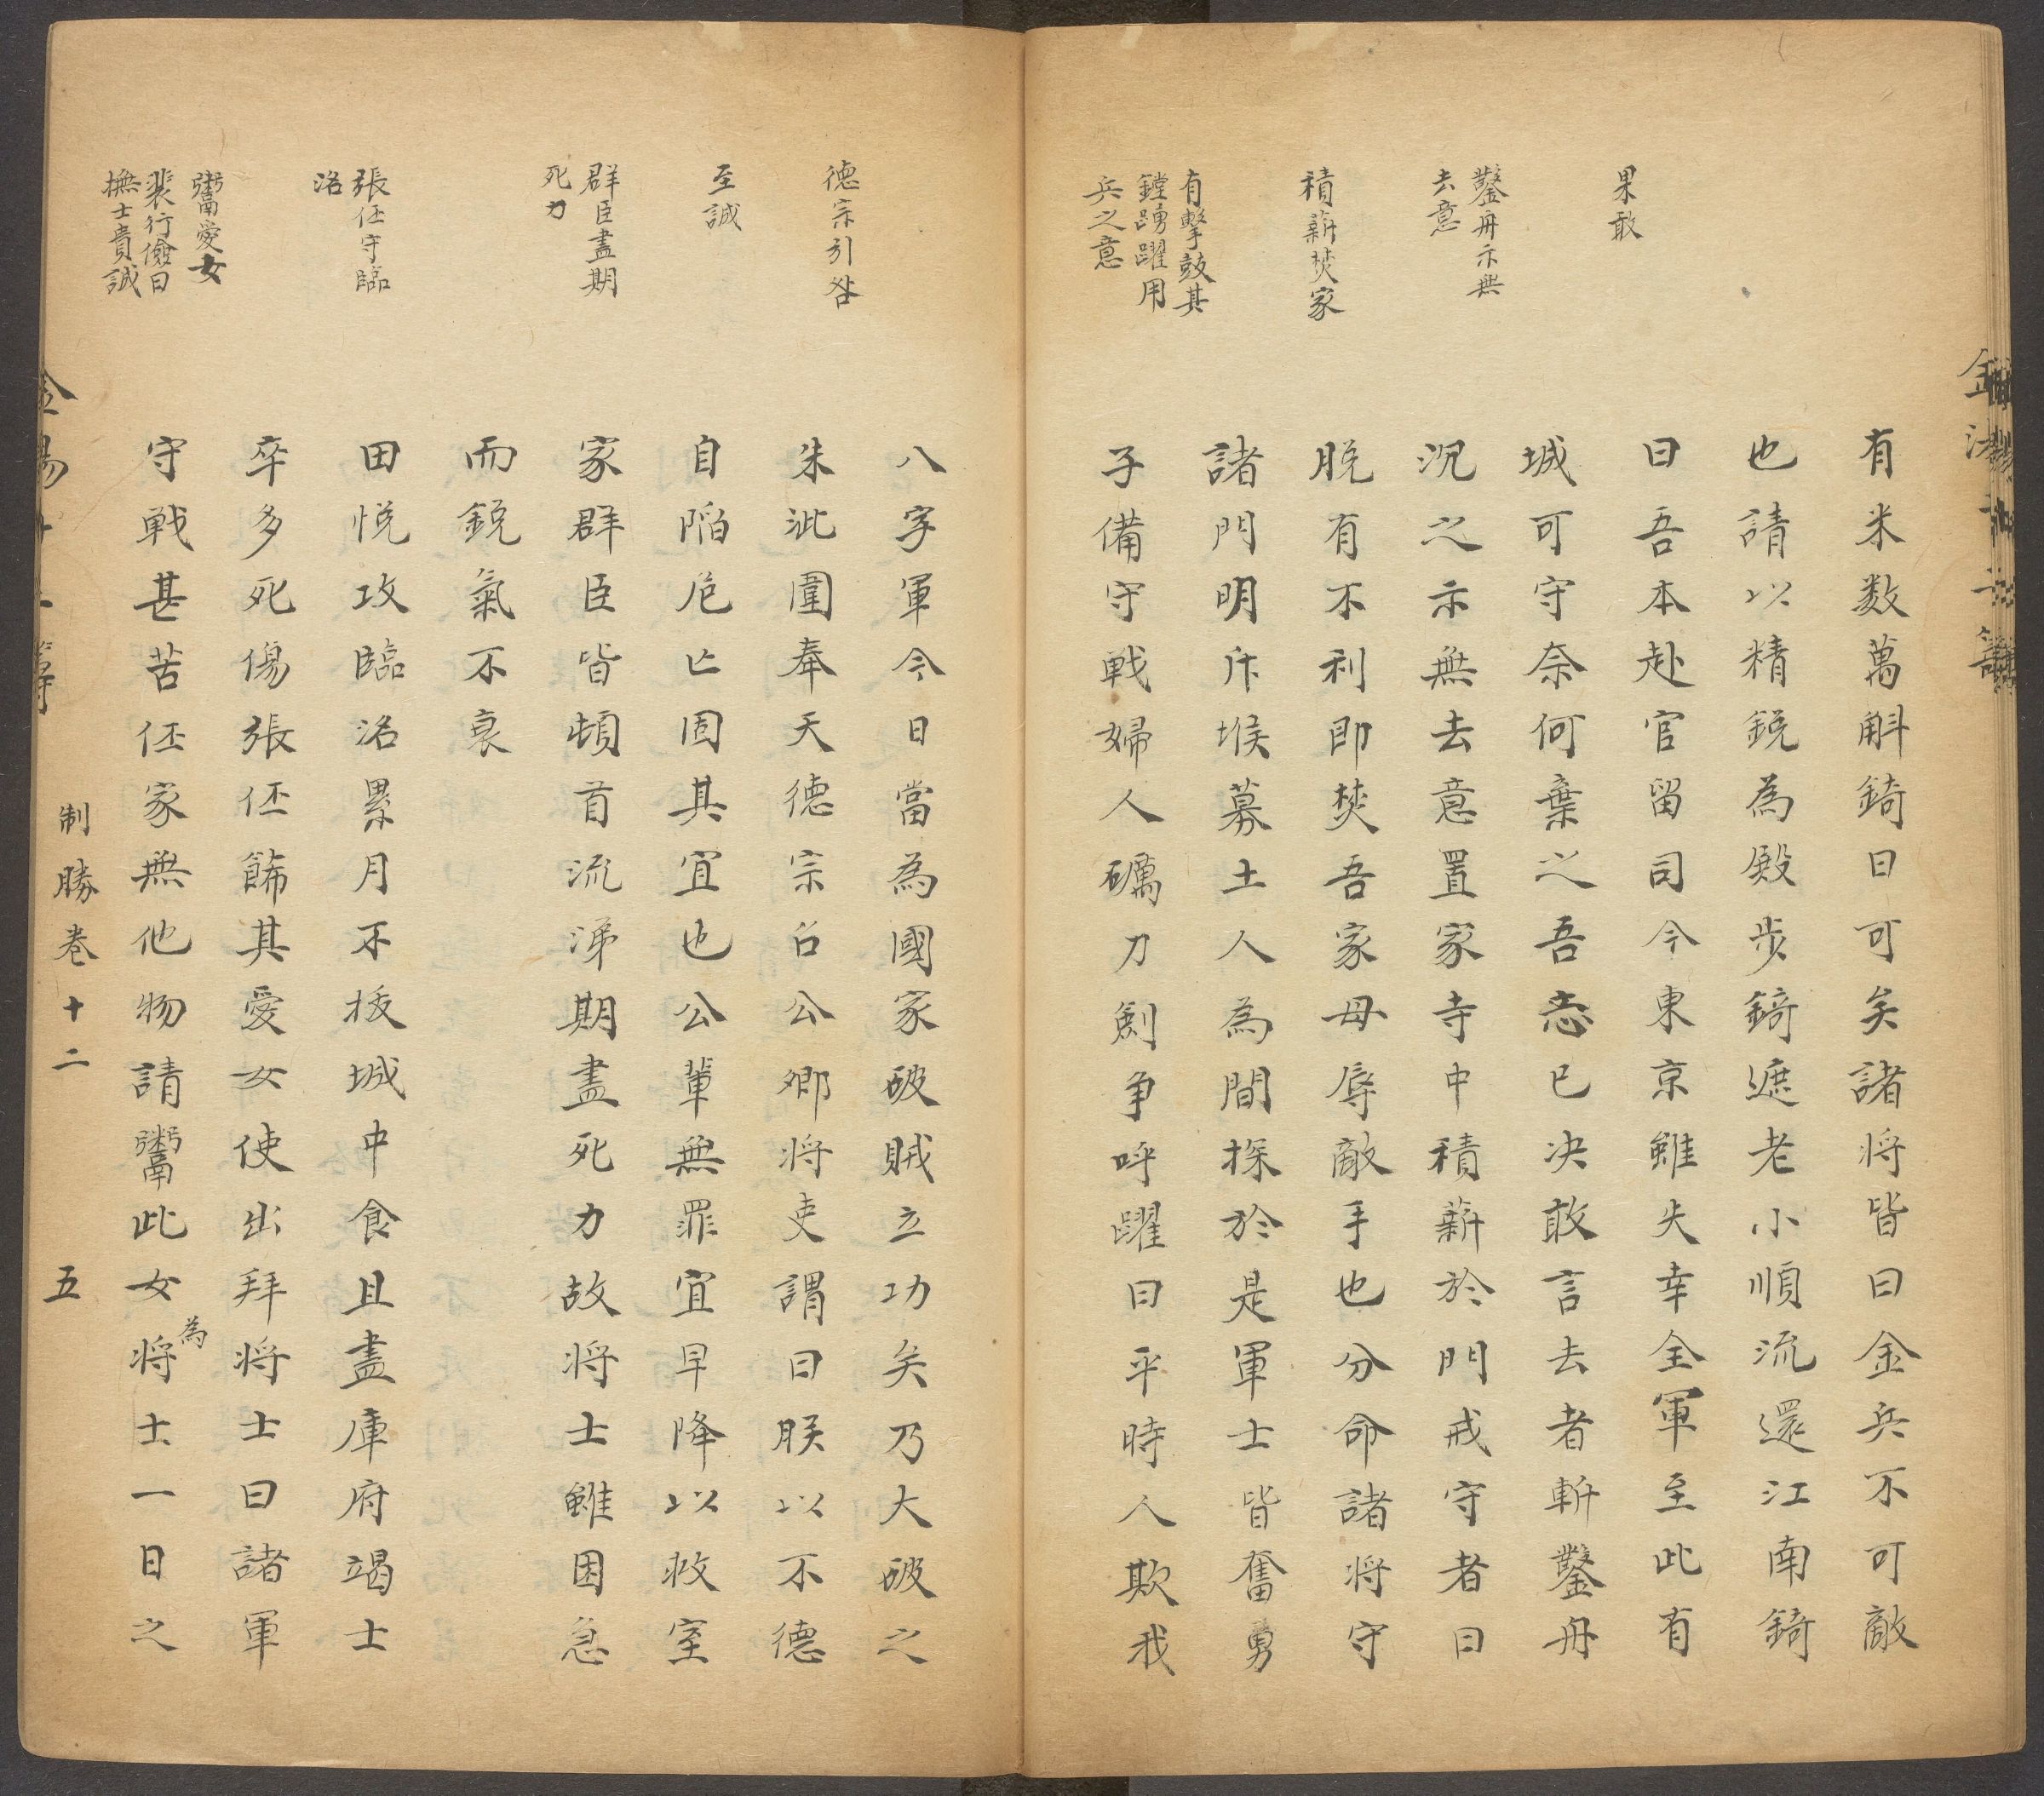 果敢
鑿舟示無
去意
積薪焚家
有擊鼓其
鏜踴躍用
兵之意
有米数萬斛錡曰可矣諸将皆曰金兵不可敵
也請以精鋭為殿步錡遮老小順流還江南錡
曰吾本赴官留司今東京雖失幸全軍至此有
城可守奈何棄之吾志已决敢言去者斬鑿舟
沉之示無去意置家寺中積薪於門戒守者曰
脱有不利即焚吾家母辱敵手也分命諸将守
諸門明斥堠募土人為間探於是軍士皆奮勇
子備守戦婦人礪刀劍争呼躍曰平時人欺我
德宗引咎
至誠
群臣盡期
死力
張伾守臨
洺
鬻愛女
裴行儉曰
撫士貴誠
八字軍今日當為國家破賊立功矣乃大破之
朱泚圍奉天德宗召公卿将吏謂曰朕以不德
自陷危亡固其宜也公輩無罪宜早降以救室
家群臣皆頓首流涕期盡死力故将士雖困急
而鋭氣不衰
田悅攻臨洺累月不拔城中食且盡庫府竭士
卒多死傷張伾飾其愛女使出拜将士曰諸軍
守戦甚苦伾家無他物請鬻此女為将士一日之
制勝卷十二 五